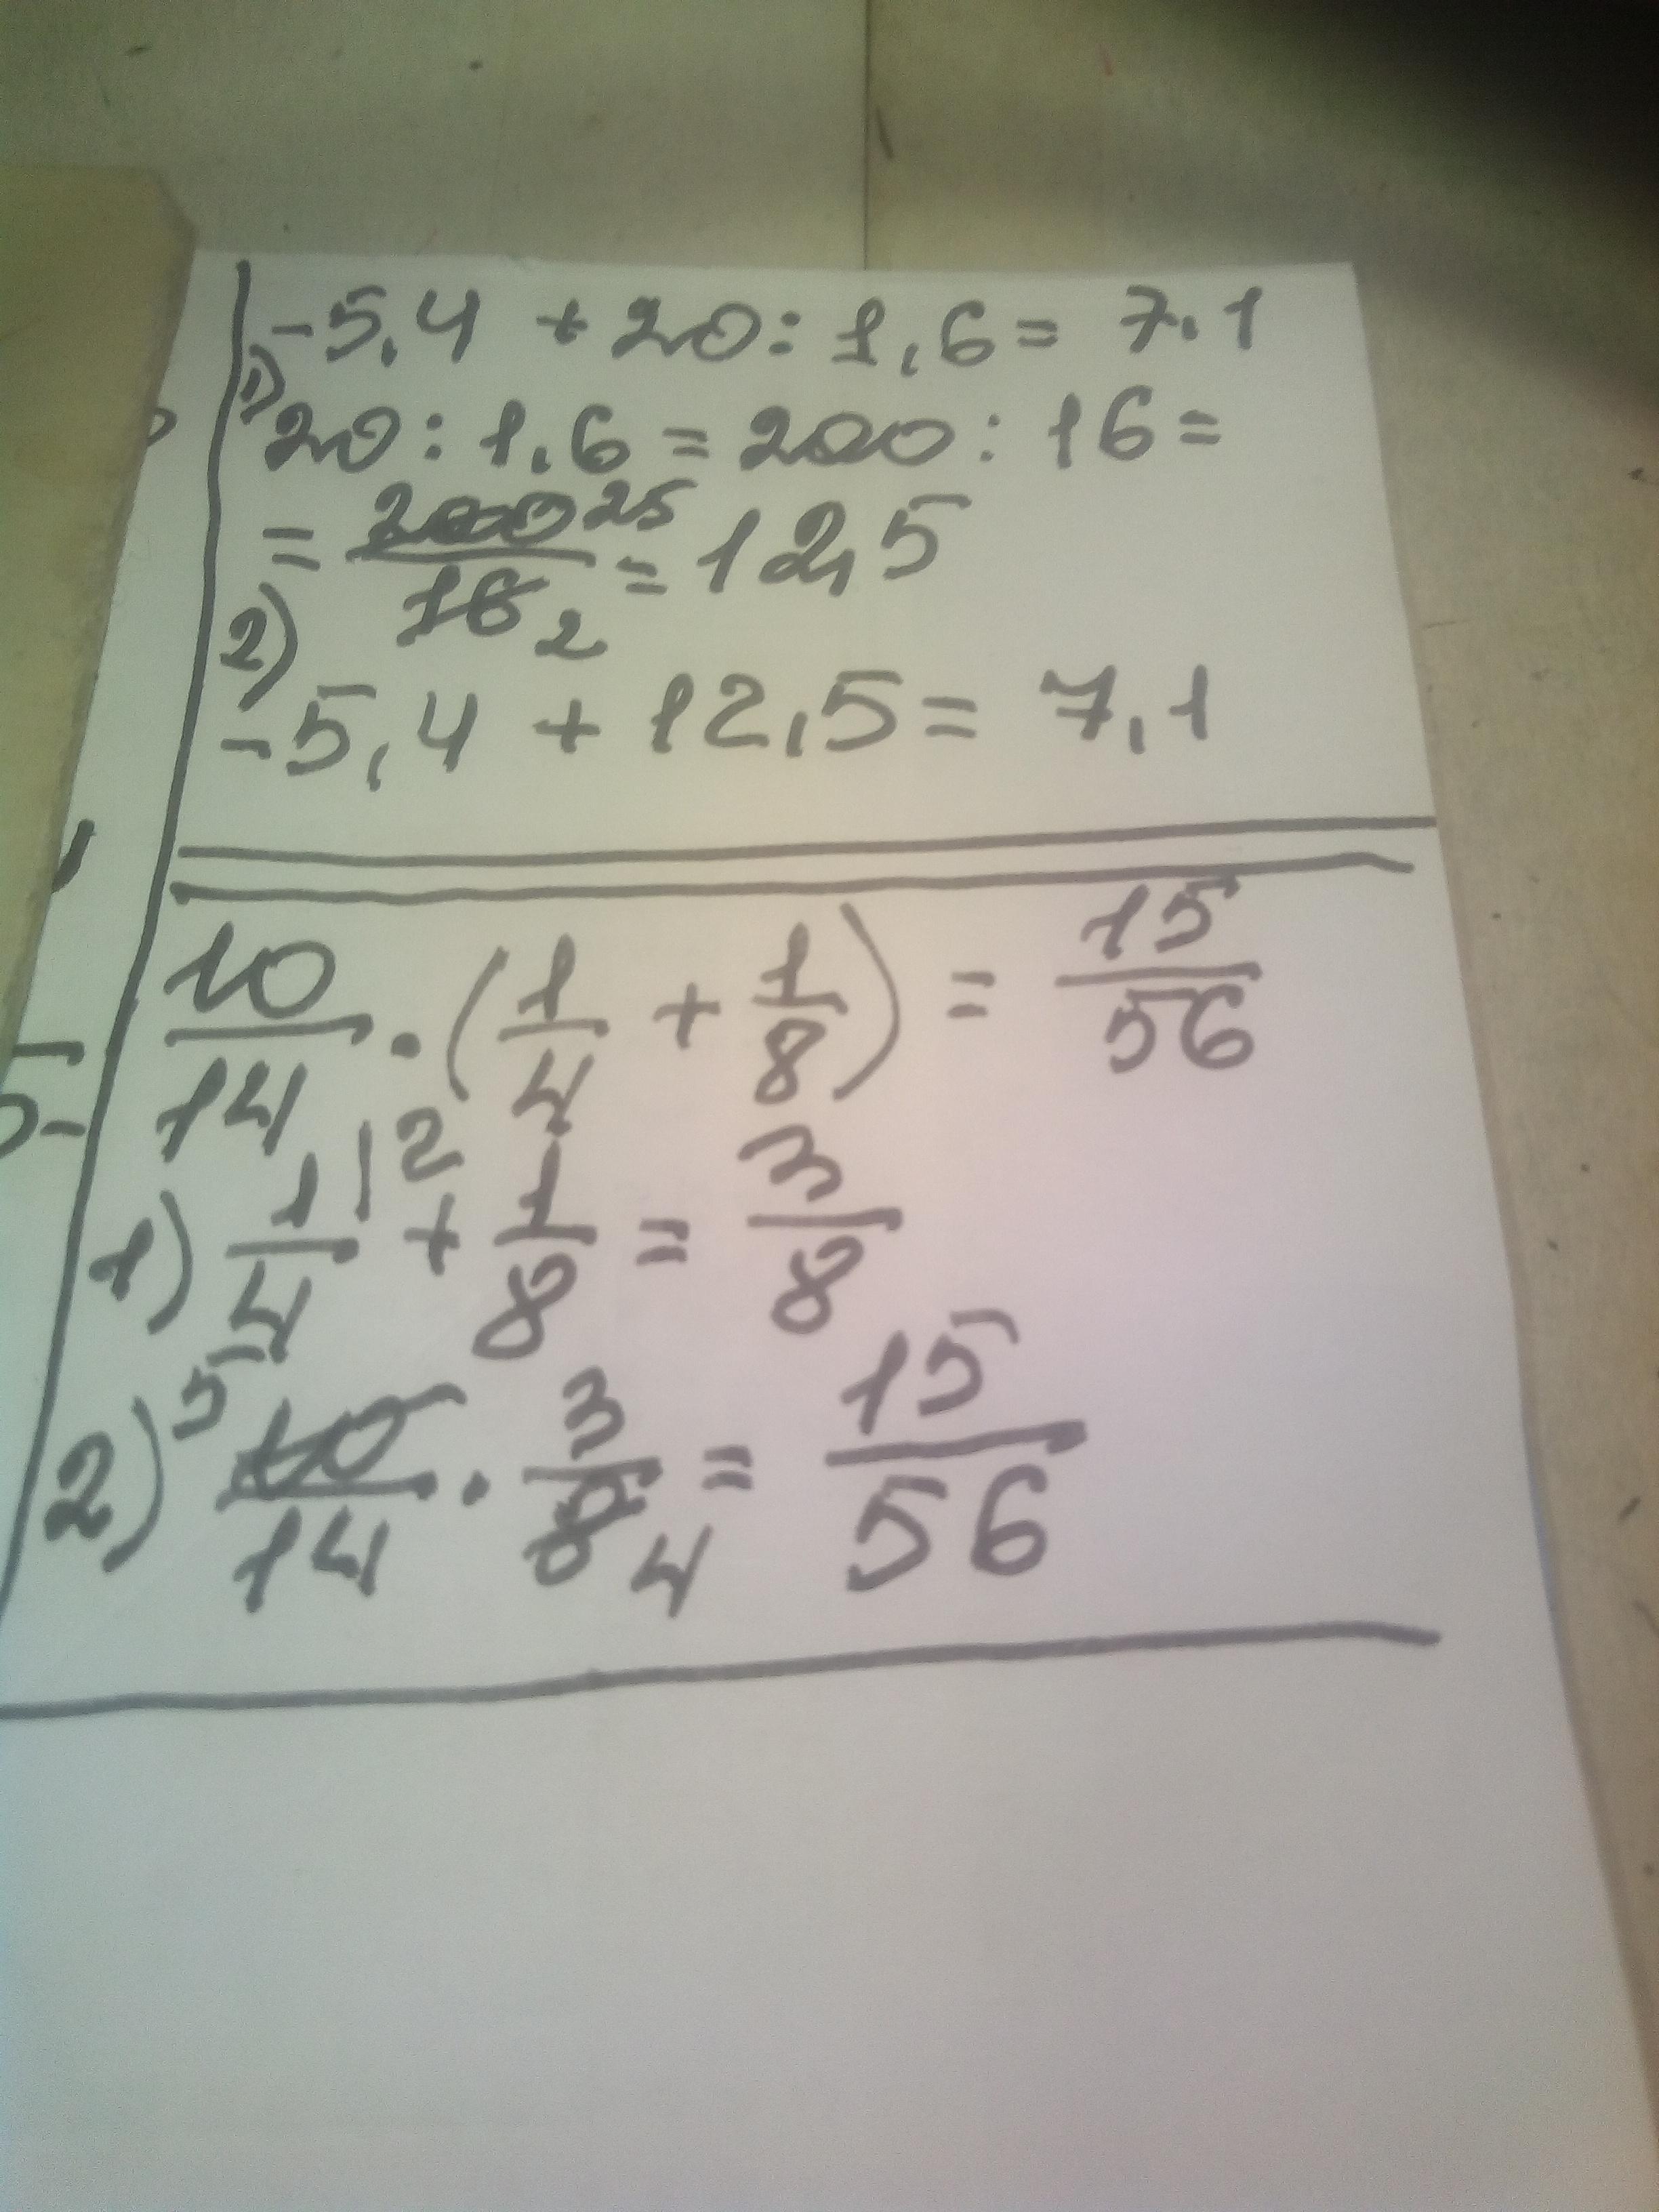 -5,4 + 20 : 1,6 = 7,1
1) 20 : 1,6 = 200 : 16 =
= 200/16 25 2 = 12,5
2) -5,4 + 12,5 = 7,1
10/14 · (1/4 + 1/8) = 15/56
1) 1/4 |2 + 1/8 = 3/8
2) 5 10/14 · 3/8 4 = 15/56